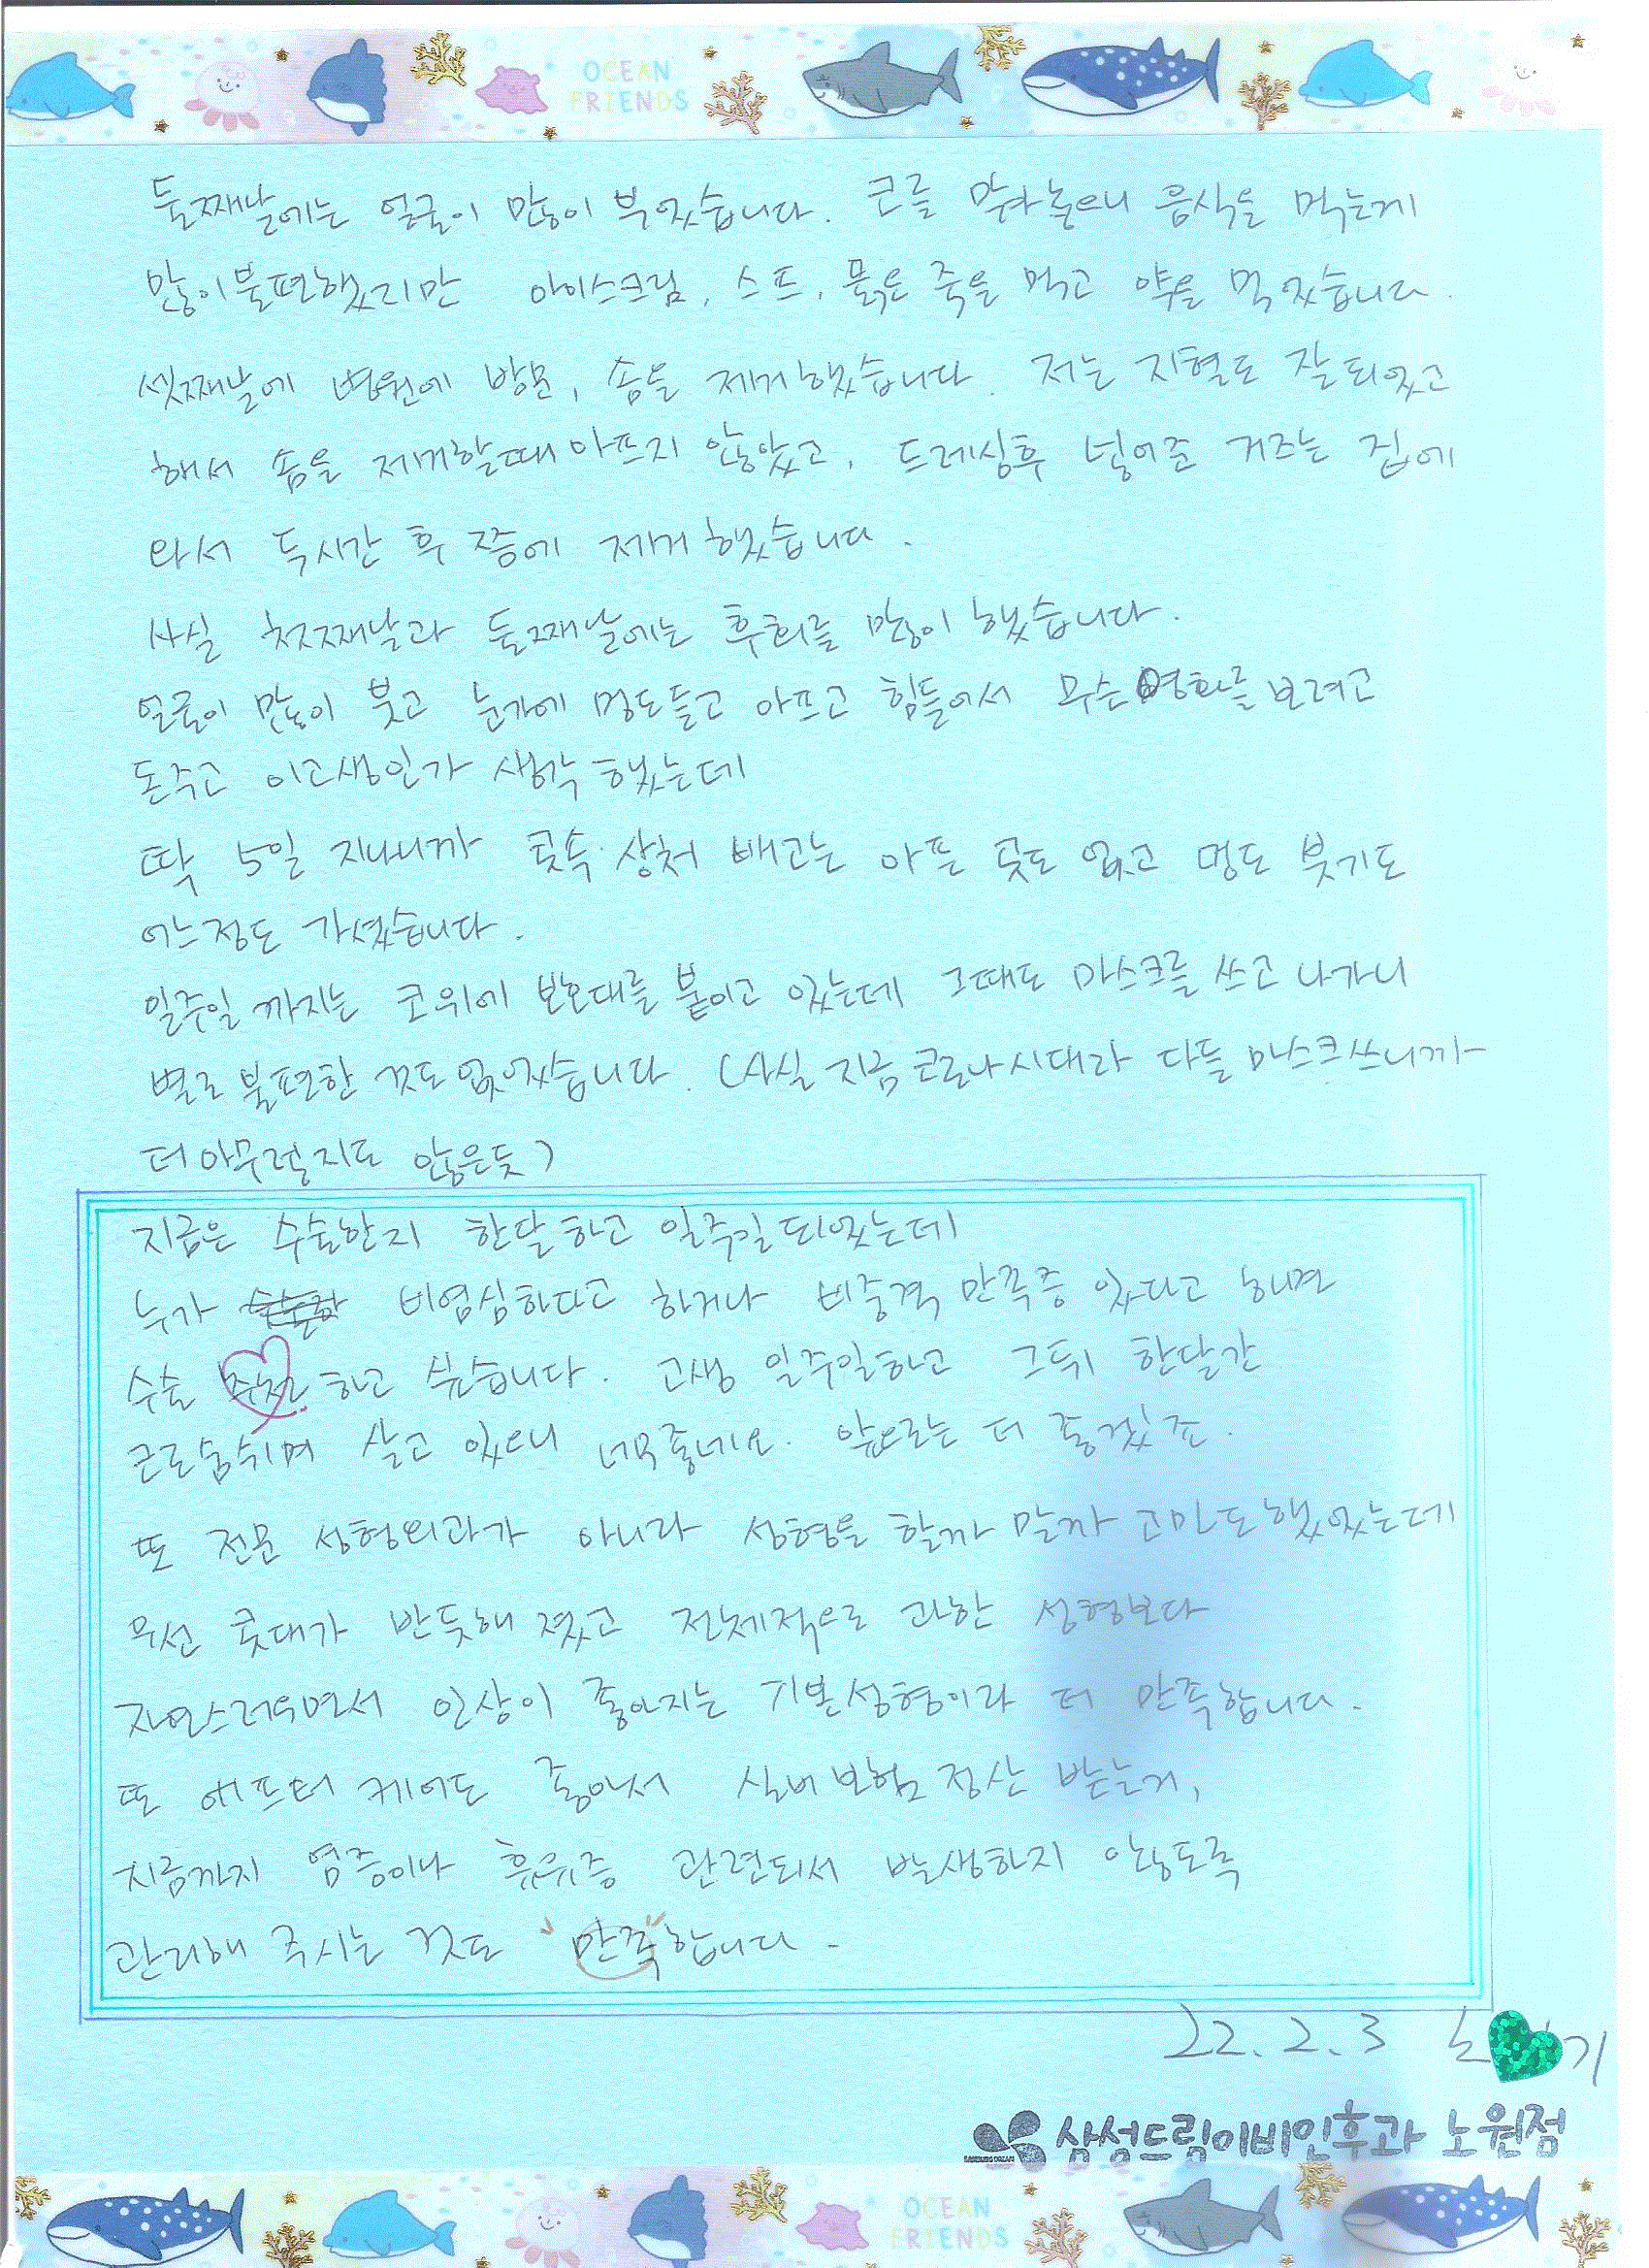 OCEAN
FRIENDS
둘째날에는 얼굴이 많이 부었습니다. 코를 막아 놓으니 음식을 먹는게
많이 불편했지만 아이스크림, 스프, 묽은 죽을 먹고 약을 먹었습니다.
셋째날에 병원에 방문, 솜을 제거했습니다. 저는 지혈도 잘 되었고
해서 솜을 제거할때 아프지 않았고, 드레싱후 넣어준 거즈는 집에
와서 두시간 후 쯤에 제거 했습니다.
사실 첫째날과 둘째날에는 후회를 많이 했습니다.
얼굴이 많이 붓고 눈가에 멍도들고 아프고 힘들어서 무슨 영화를 보려고
돈주고 이고생인가 생각 했는데
딱 5일 지나니까 콧속 상처 빼고는 아픈 곳도 없고 멍도 붓기도
어느정도 가셨습니다.
일주일 까지는 코위에 보호대를 붙이고 있는데 그때도 마스크를 쓰고 나가니
별로 불편한 것도 없었습니다. (사실 지금 코로나시대라 다들 마스크쓰니까
더 아무렇지도 않은듯)
지금은 수술한지 한달하고 일주일 되었는데
누가 비염심하다고 하거나 비중격 만곡증 있다고 하면
수술 추천 하고 싶습니다. 고생 일주일하고 그뒤 한달간
코로숨쉬며 살고 있으니 너무 좋네요. 앞으로는 더 좋겠죠.
또 전문 성형외과가 아니라 성형을 할까 말까 고민도 했었는데
우선 콧대가 반듯해 졌고 전체적으로 과한 성형보다
자연스러우면서 인상이 좋아지는 기본성형이라 더 만족합니다.
또 애프터 케어도 좋아서 실비보험 정산 받는거,
지금까지 염증이나 휴유증 관련되서 발생하지 않도록
관리해 주시는 것도 "만족"합니다.
22.2.3 노 기
삼성드림이비인후과 노원점
OCEAN
FRIENDS